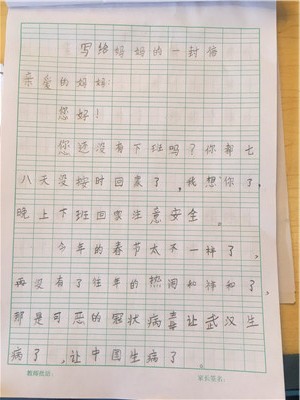 写给妈妈的一封信
亲爱的妈妈:
您好!
您还没有下班吗?你都七
八天没按时回家了,我想你了,
晚上下班回家注意安全。
今年的春节太不一样了,
再没有了往年的热闹和祥和了
都是可恶的冠状病毒让武汉生
病了,让中国生病了
教师批语:
家长签名: